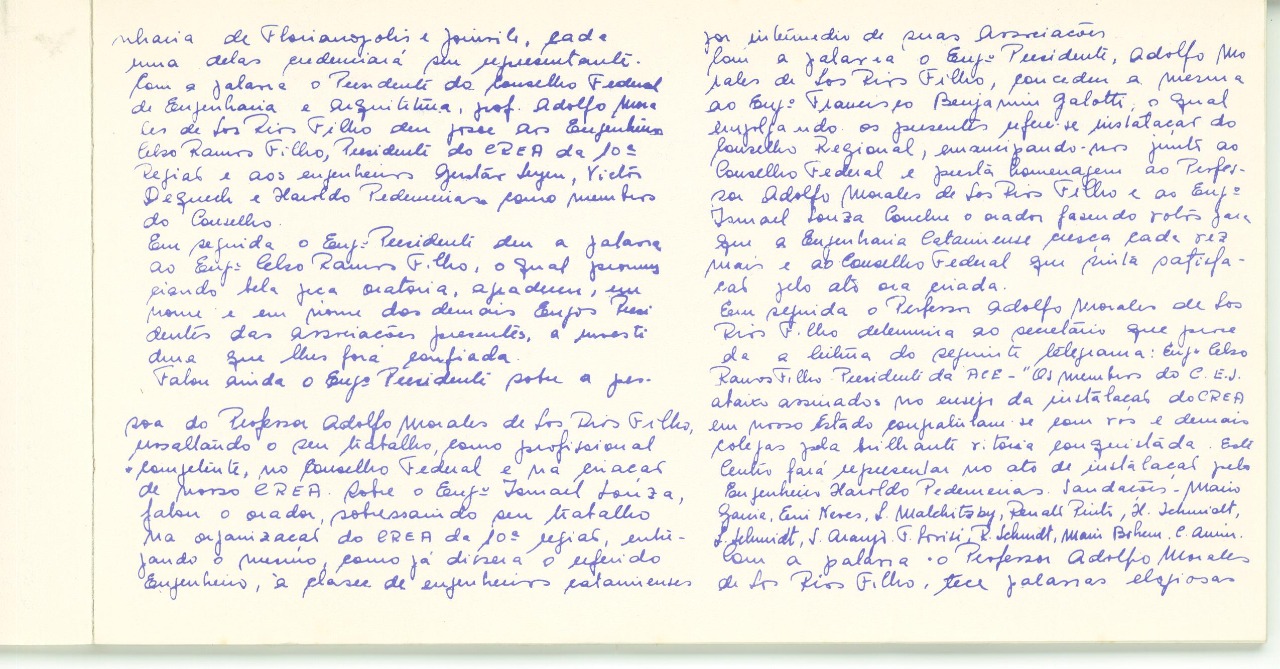 nharia de Florianopolis e Joinvile, cada
uma delas credenciará seu representante.
Com a palavra o Presidente do Conselho Federal
de Engenharia e Arquitetura, prof. Adolfo Mora
les de Los Rios Filho deu posse aos Engenheiros
Celso Ramos Filho, Presidente do CREA da 10ª
Região e aos engenheiros Gustav Victor
Dequech e Haroldo Pedeneiras como membros
do Conselho.
Em seguida o Engº Presidente deu a palavra
ao Engº Celso Ramos Filho, o qual pronun
ciando bela peça oratoria, agradeceu, em
nome e em nome dos demais Engos Presi
dentes das Associações presentes, a investi
dura que lhes fora confiada.
Falou ainda o Engº Presidente sobre a pes-
soa do Professor Adolfo Morales de Los Rios Filho,
ressaltando o seu trabalho, como profissional
competente, no Conselho Federal e na criação
de nosso CREA. Sobre o Engº Ismael Souza,
falou o orador, sobressaindo seu trabalho
na organização do CREA da 10ª região, entre-
gando o mesmo, como já dissera o referido
Engenheiro, à classe de engenheiros catarinenses
por intermedio de suas Associações
Com a palavra o Engº Presidente, Adolfo Mo
rales de Los Rios Filho, concedeu a mesma
ao Engº Francisco Benjamin Galotti, o qual
empolgando os presentes refere-se instalação do
Conselho Regional, emancipando-nos junto ao
Conselho Federal e presta homenagem ao Profes-
sor Adolfo Morales de Los Rios Filho e ao Engº
Ismael Souza Conclue o orador fazendo votos para
que a Engenharia Catarinense cresça cada vez
mais e ao Conselho Federal que sinta satisfa-
ção pelo ato ora criado.
Em seguida o Professor Adolfo Morales de Los
Rios Filho determina ao secretário que proce
da a leitura do seguinte telegrama: Engº Celso
Ramos Filho Presidente da ACE - "Os membros do C.E.J.
abaixo assinados no ensejo da instalação do CREA
em nosso Estado congratulam-se com vós e demais
colegas pela brilhante vitoria conquistada. Este
Centro fará representar no ato de instalação pelo
Engenheiro Haroldo Pedeneiras. Saudações - Mario
Neves, S. Malchitzky, Renato H. Schmidt,
Schmidt, J. Araujo R. Schmidt, Mario C. Amin.
Com a palavra o Professor Adolfo Morales
de Los Rios Filho, tece palavras elogiosas